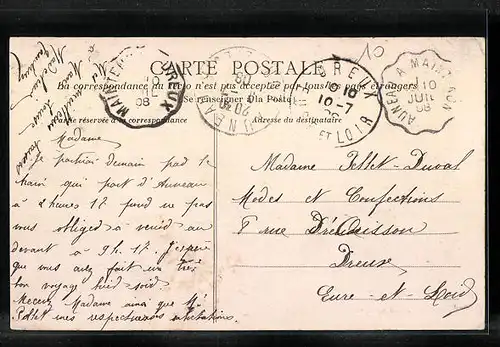 CARTE POSTALE
La correspondance au recto n'est pas acceptée par tous les pays étrangers
(Se renseigner à la Poste)
Partie réservée à la correspondance
Adresse du destinataire
MAINTENON
DREUX
08
DREUX
10-7
ET LOIR
AUNEAU A MAINTENON
10
JUIL
08
10
Madame
Je partirai demain par le
train qui part d'Auneau
à 2 heures 17 pour ne pas
vous obliger à venir au
devant à 9h. 17 J'espère
que vous avez fait un très
bon voyage hier soir
Recevez Madame ainsi que Mr
Pellet mes respectueuses salutations.
Madame Pellet-Duval
Modes et Confections
8 rue
Dreux
Eure-et-Loir